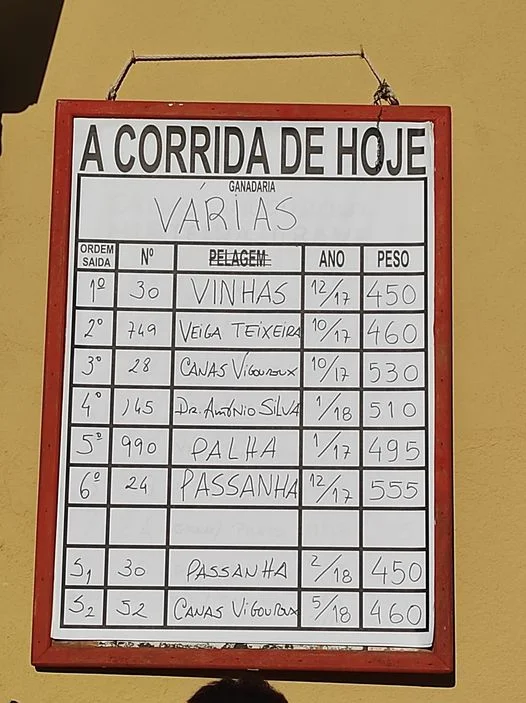 A CORRIDA DE HOJE
GANADARIA
VÁRIAS
ORDEM SAIDA Nº PELAGEM ANO PESO
1º 30 VINHAS 12/17 450
2º 749 VEIGA TEIXEIRA 10/17 460
3º 28 CANAS VIGOUROUX 10/17 530
4º 145 DR. António SILVA 1/18 510
5º 990 PALHA 1/17 495
6º 24 PASSANHA 12/17 555
S1 30 PASSANHA 2/18 450
S2 52 CANAS VIGOUROUX 5/18 460